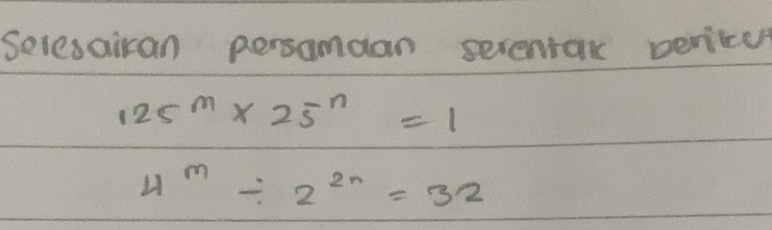 Selesaikan persamaan serentak berikut
125^m × 25^n = 1
4^m ÷ 2^2n = 32